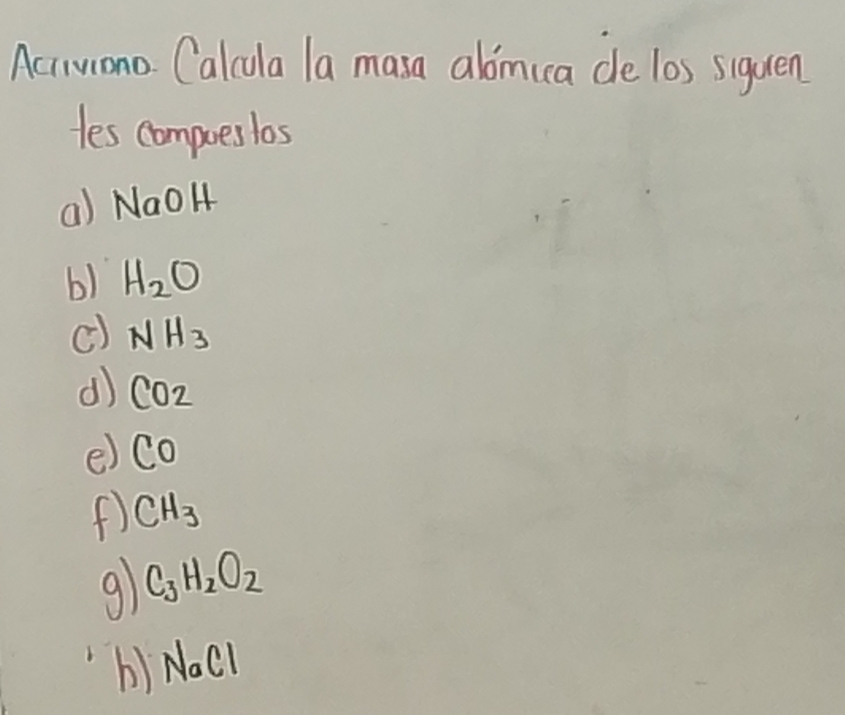 ACTIVIDAD. Calcula la masa atómica de los siguien
tes compuestos
a) NaOH
b) H₂O
c) NH₃
d) CO₂
e) CO
f) CH₃
g) C₃H₂O₂
h) NaCl